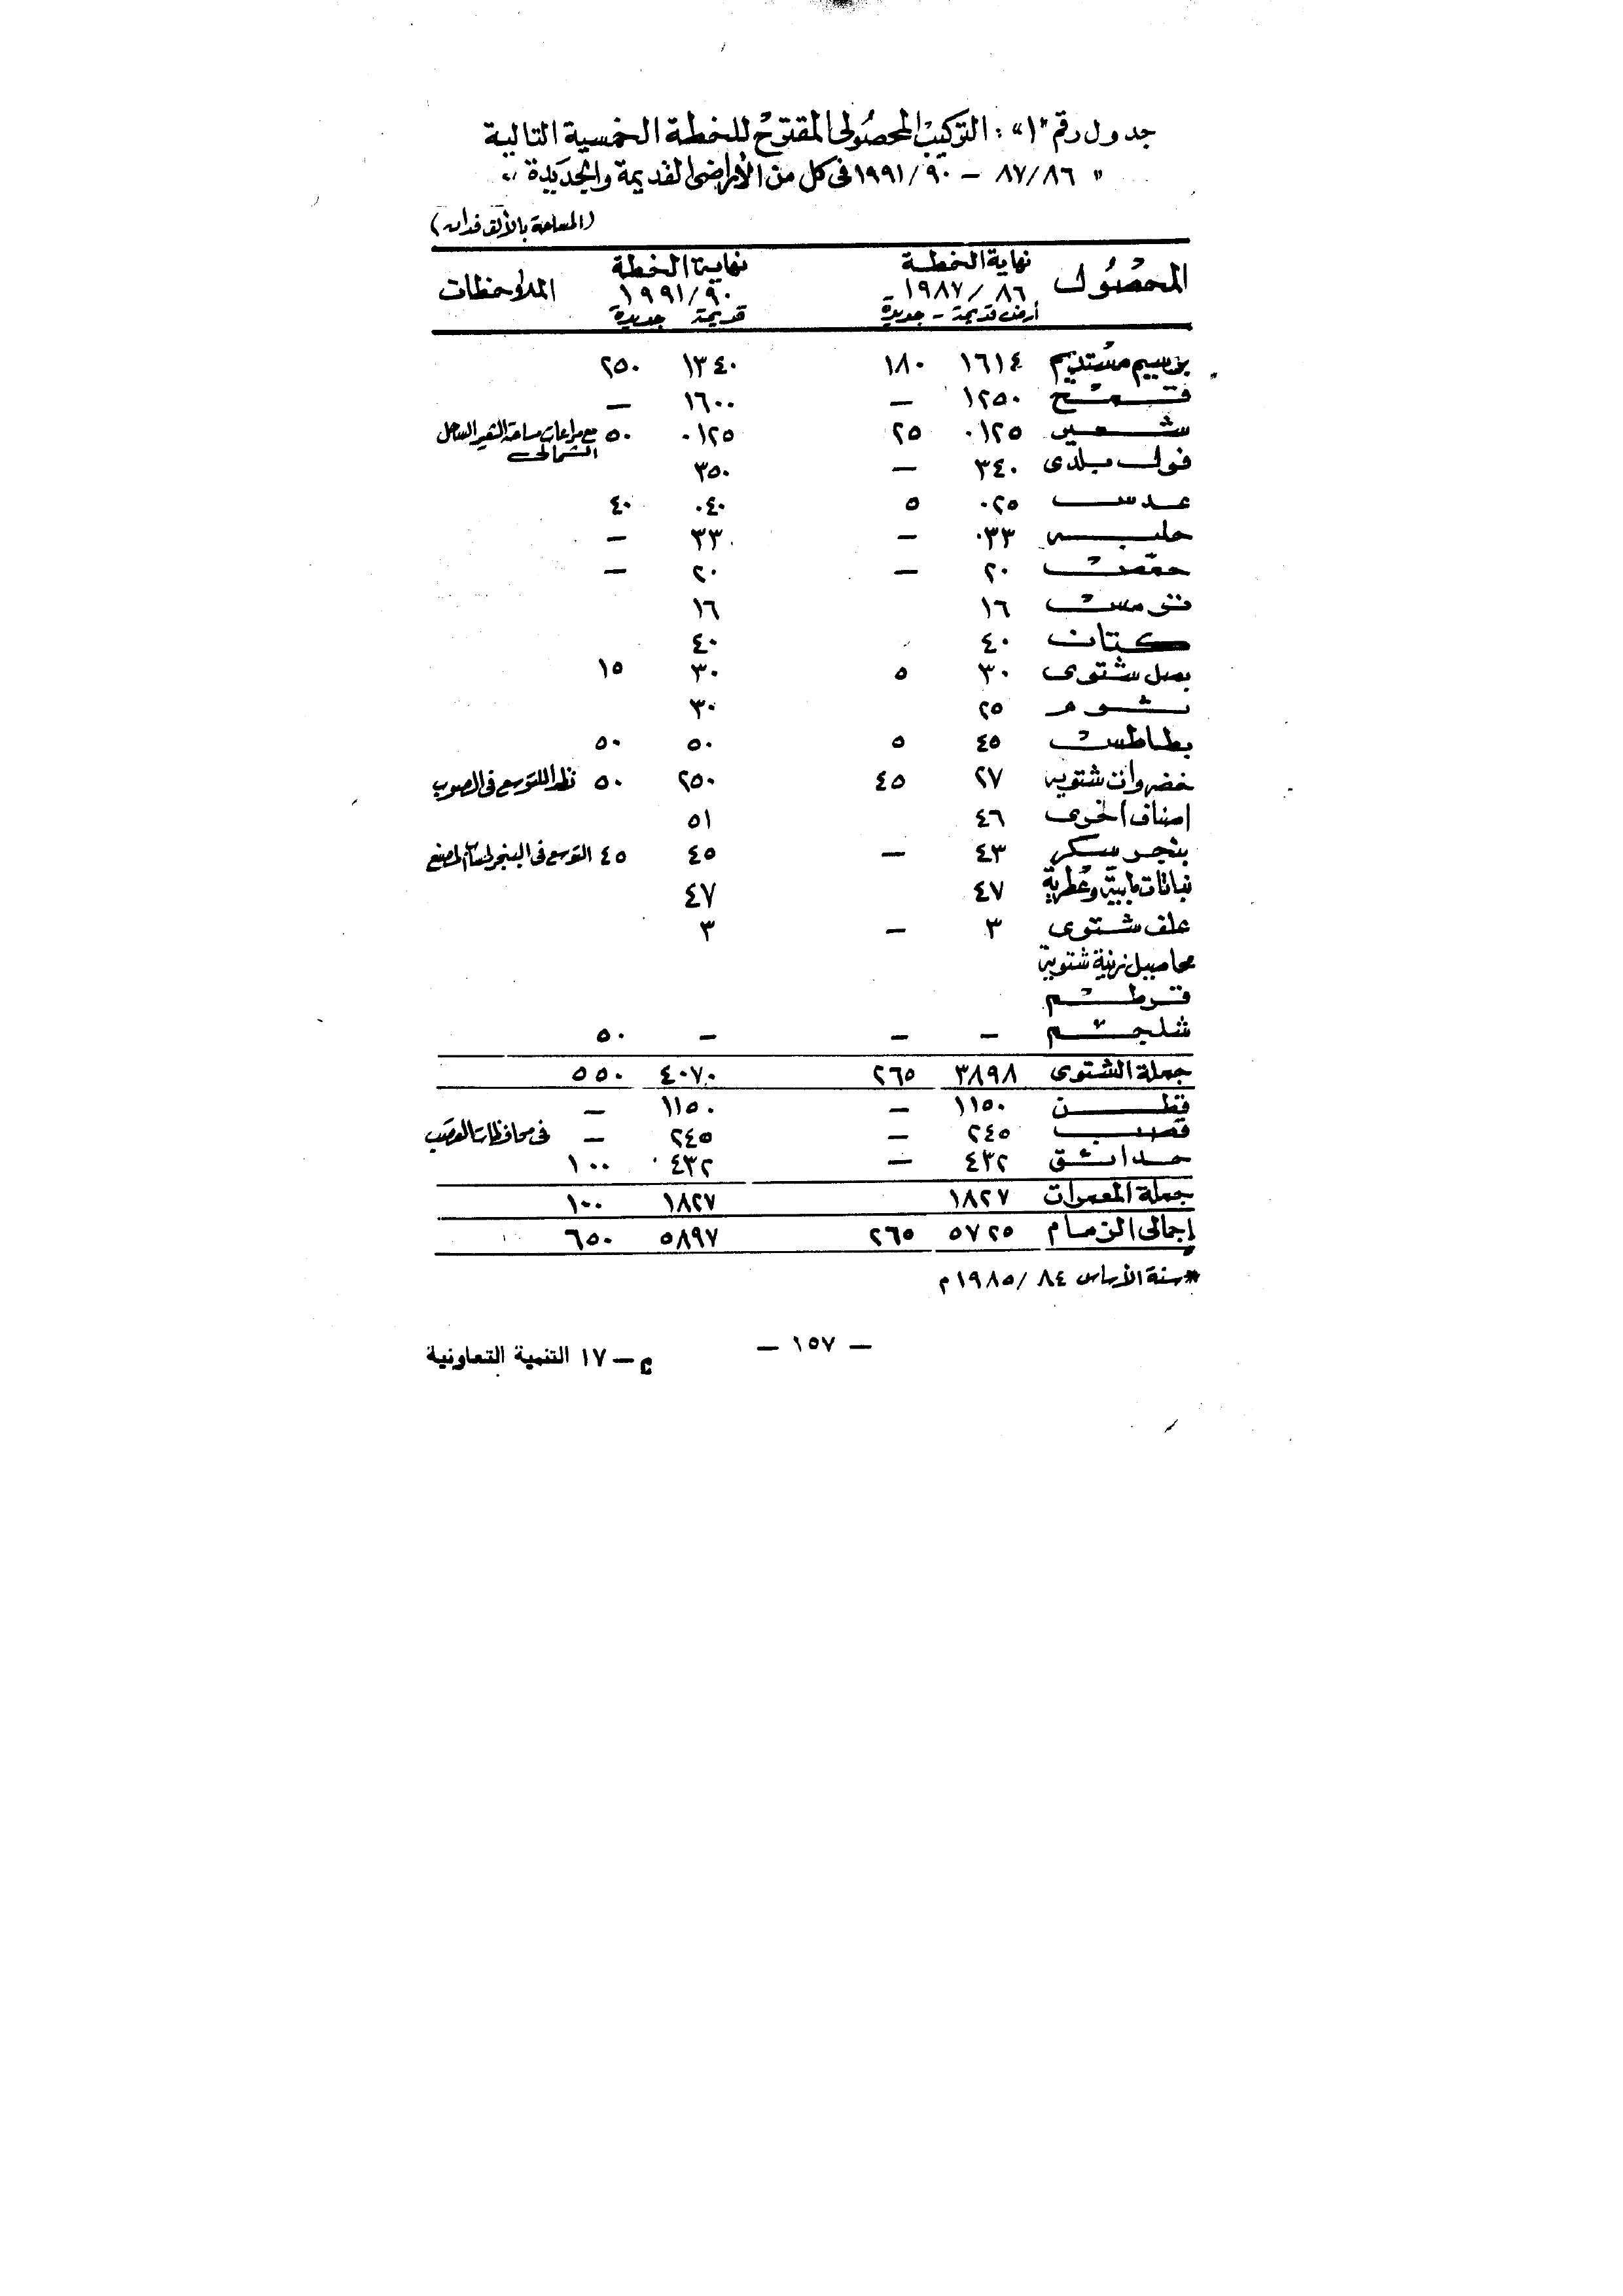 جدول رقم "١" : التركيب المحصولى المقترح للخطة الخمسية التالية
" ٨٧/٨٦ – ١٩٩١/٩٠ فى كل من الأراضى القديمة والجديدة "
(المساحة بالألف فدان)
المحصول نهاية الخطة نهاية الخطة الملاحظات
١٩٨٧/٨٦ ١٩٩١/٩٠
أرض قديمة – جديدة قديمة جديدة
برسيم مستديم ١٦١٤ ١٨٠ ١٣٤٠ ٢٥٠
قمح ١٢٥٠ — ١٦٠٠ —
شعير ٠١٢٥ ٢٥ ٠١٢٥ ٥٠ مع مراعات مساحة الشعير الساحل
الشمالى
فول بلدى ٣٤٠ — ٣٥٠
عدس ٠٢٥ ٥ ٠٤٠ ٤٠
حلبه ٠٣٣ — ٣٣ —
حمص ٢٠ — ٢٠ —
ترمس ١٦ ١٦
كتان ٤٠ ٤٠
بصل شتوى ٣٠ ٥ ٣٠ ١٥
ثوم ٢٥ ٣٠
بطاطس ٤٥ ٥ ٥٠ ٥٠
خضروات شتويه ٢٧ ٤٥ ٢٥٠ ٥٠ نظرا للتوسع فى الصوب
اصناف اخرى ٤٦ ٥١
بنجر سكر ٤٣ — ٤٥ ٤٥ التوسع فى البنجر المصنع
نباتات طبية وعطرية ٤٧ ٤٧
علف شتوى ٣ — ٣
محاصيل زيتية شتوية
قرطم
شلجم – – – ٥٠
جملة الشتوى ٣٨٩٨ ٢٦٥ ٤٠٧٠ ٥٥٠
قطن ١١٥٠ — ١١٥٠ —
قصب ٢٤٥ — ٢٤٥ — فى محافظات القصب
حدائق ٤٣٢ — ٤٣٢ ١٠٠
جملة المعمرات ١٨٢٧ ١٨٢٧ ١٠٠
إجمالى الزمام ٥٧٢٥ ٢٦٥ ٥٨٩٧ ٦٥٠
*سنة الأساس ١٩٨٥/٨٤م
— ١٥٧ —
م – ١٧ التنمية التعاونية